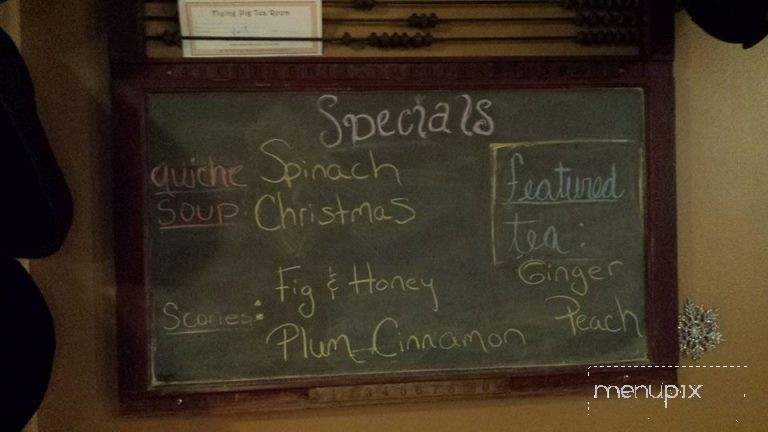 Flying Pig Tea Room
Specials
quiche Spinach
Soup Christmas
featured
tea:
Ginger
Peach
Scones:
Fig & Honey
Plum Cinnamon
menupix